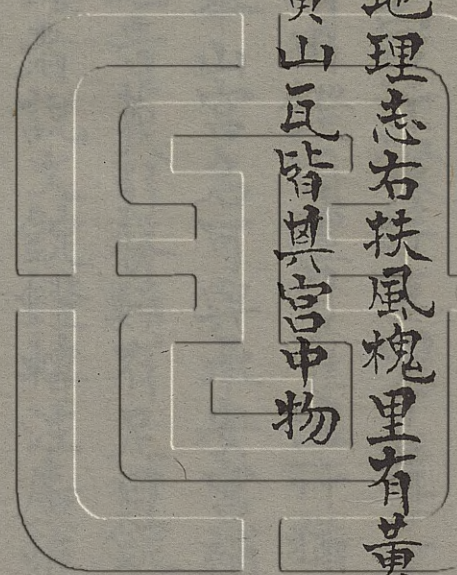 地理志右扶風槐里有黃
黃山瓦皆其宮中物